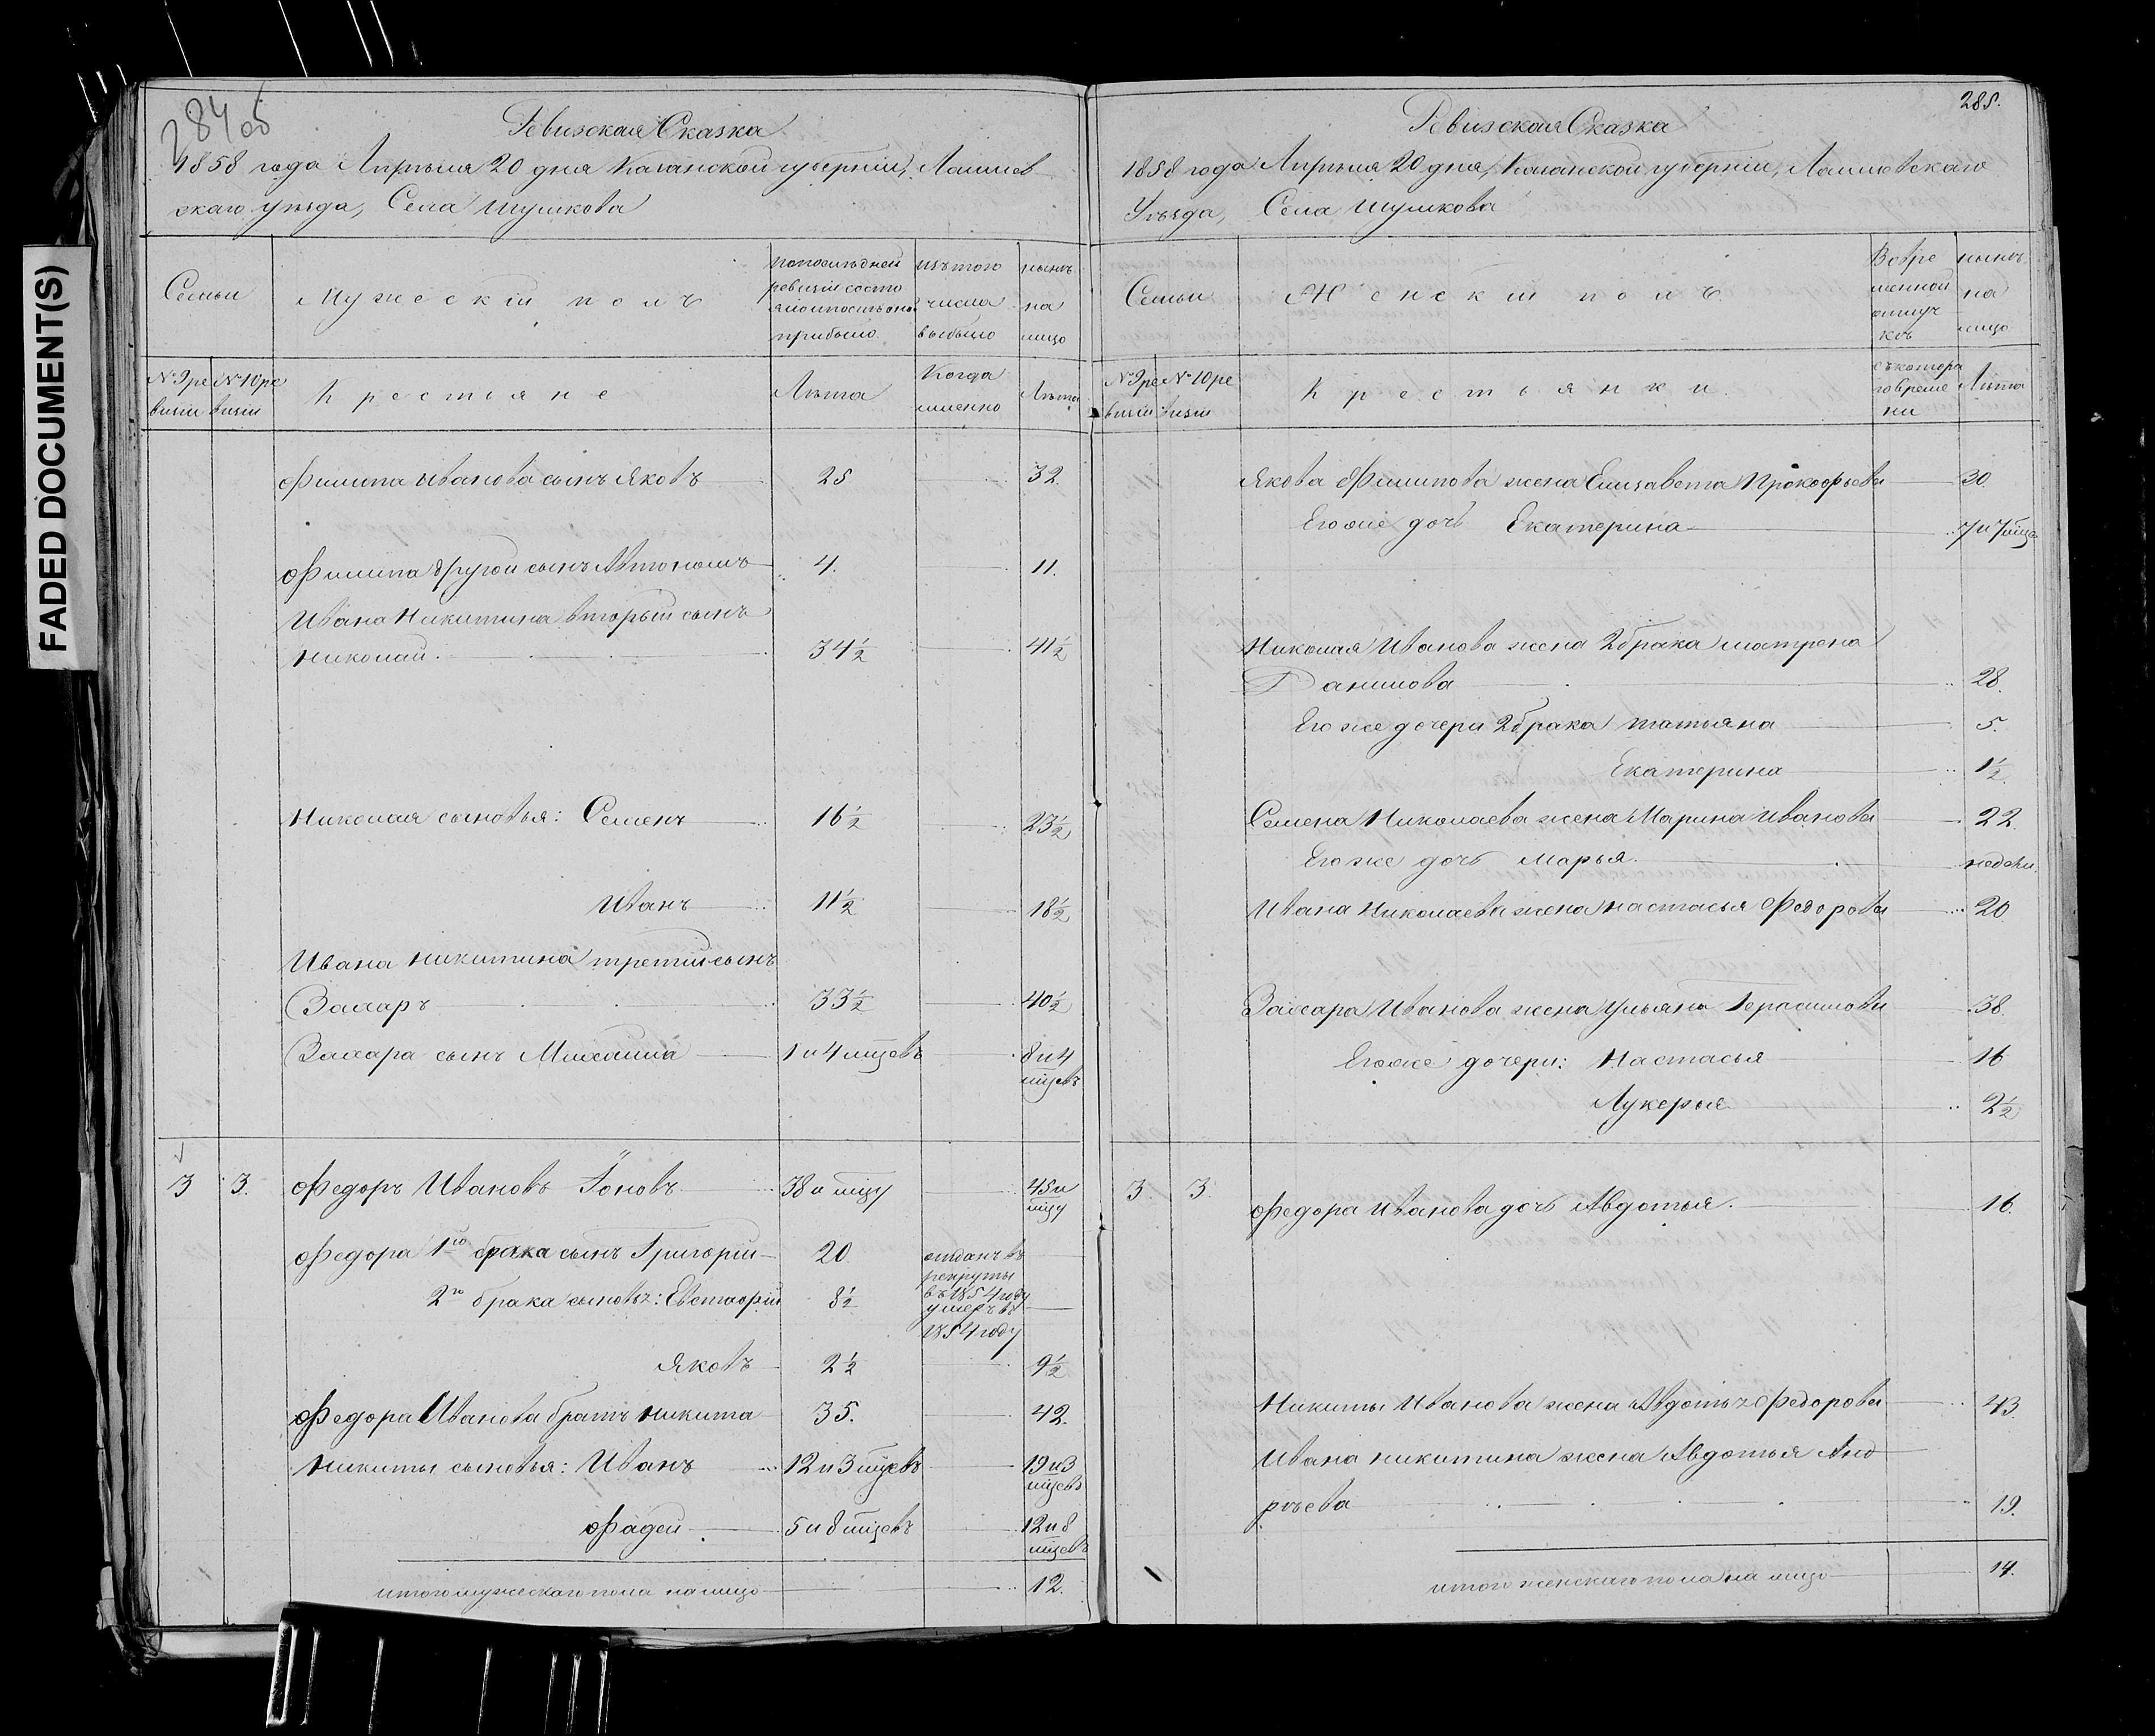 FADED DOCUMENT(S)
284 об
Ревизская Сказка
1858 года Апрѣля 20 дня Казанской губерніи, Лаишев
скаго уѣзда, Села Шушкова
Семьи
Мужескій полъ
по последней ревизіи состояло и после оной прибыло
изъ того числа выбыло
нынѣ на лицо
№ 9 ревизіи
№ 10 ревизіи
Крестьяне
Лѣта
Когда именно
Лѣта
Филипа Иванова сынъ Яковъ 25 32
Филипа другой сынъ Автономъ 4. 11.
Ивана Никитина вторый сынъ
Николай. 34½ 41½
Николая сыновья: Семенъ 16½ 23½
Иванъ 11½ 18½
Ивана Никитина третій сынъ
Захаръ 33½ 40½
Захара сынъ Михаила 1 и 4 мцевъ 8 и 4 мцевъ
3 3. Федоръ Ивановъ Іоновъ 38 и мцу 45 и мцу
Федора 1го брака сынъ Григорій 20. отданъ въ рекруты въ 1854 году
2го брака сыновья: Евстафій 8½ умеръ въ 1854 году
Яковъ 2½ 9½
Федора Иванова братъ Никита 35. 42.
Никиты сыновья: Иванъ 12 и 3 мцевъ 19 и 3 мцевъ
Фадей 5 и 8 мцевъ 12 и 8 мцевъ
итого мужескаго пола на лицо 12.
285.
Ревизская Сказка
1858 года Апрѣля 20 дня, Казанской губерніи, Лаишевскаго
Уѣзда, Села Шушкова
Семьи
Женскій полъ
Во временной отлучкѣ
нынѣ на лицо
№ 9 ревизіи
№ 10 ревизіи
Крестьянки.
съ котораго времени
Лѣта
Якова Филипова жена Елизавета Прокофьева 30
Его же дочь Екатерина 7 и 7 мца
Николая Иванова жена 2 брака Матрена
Данилова 28.
Его же дочери 2 брака Татьяна 5.
Екатерина 1½
Семена Николаева жена Марина Иванова 22.
Его же дочь Марья. недели.
Ивана Николаева жена Настасья Федорова 20
Захара Иванова жена Ульяна Герасимова 38.
Его же дочери: Настасья 16
Лукерья 2½
3. 3. Федора Иванова дочь Авдотья. 16.
Никиты Иванова жена Авдотья Федорова 43
Ивана Никитина жена Авдотья Анд
рѣева 19.
итого женскаго пола на лицо 14.